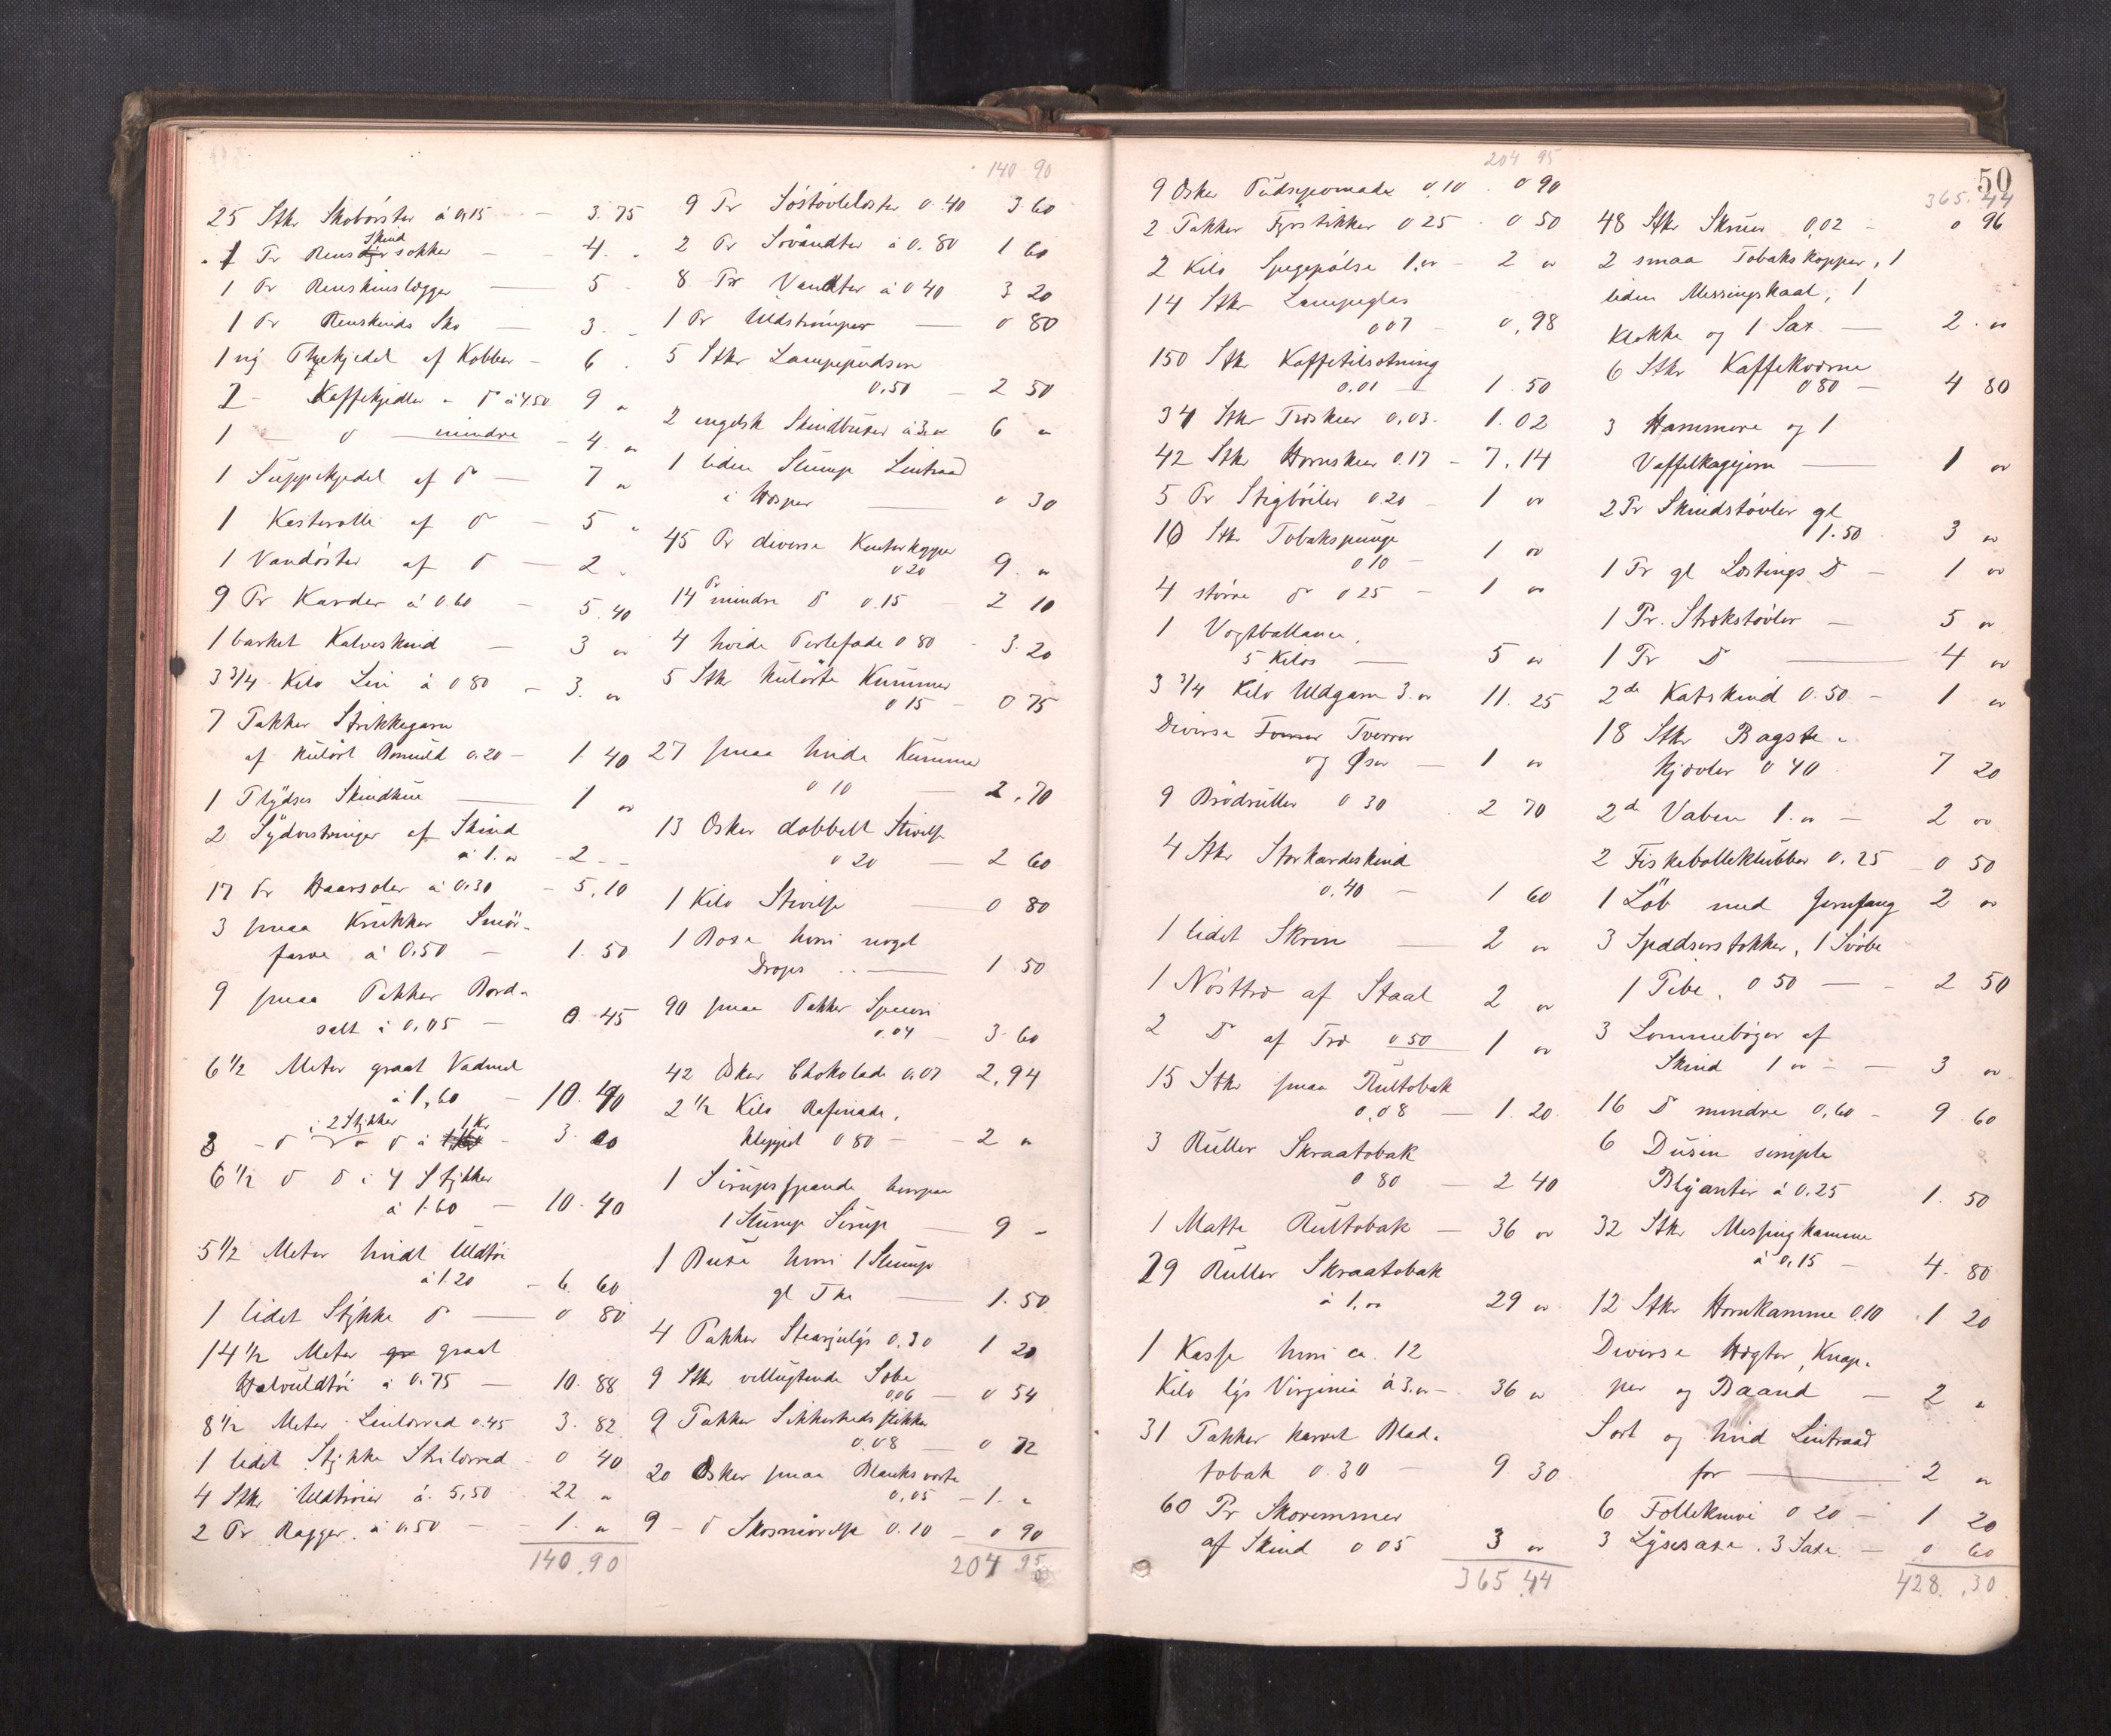 25 Stkr Skobørster á 0,15 — 3. 75
1 Pr Renskind sokker — 4. "
1 Pr Renskinslegger — 5 "
1 Pr Renskinds Sko — 3. "
1 ny Thekjedel af Kobber — 6 "
2 - Kaffekjedler - D á 4.50 9 "
1 — D — mindre — 4. "
1 Suppekjedel af D — 7 "
1 Kasterolle af D — 5 "
1 Vandøster af D — 2 "
9 Pr Karder á 0.60 — 5. 40
1 barket Kalveskind — 3 "
3 3/4 Kilo Lin á 0 80 — 3. "
7 Pakker Strikkegarn
af kulørt Bomuld 0.20 — 1. 40
1 Skindhue — 1 "
2 Sydvestringer af Skind
á 1. " - 2 - -
17 Pr Haarsoler á 0.30 — 5,10
3 smaa Krukker Smør-
farve á 0.50 — 1. 50
9 smaa Pakker Bord-
salt á 0,05 — 0. 45
6 1/2 Meter graat Vadmel
á 1,60 — 10. 40
3 - D i 2 Stykker D á 1 Kr - 3. 00
6 1/2 D D i 4 Stykker
á 1.60 — 10. 40
5 1/2 Meter hvidt Uldtøi
á 1.20 — 6. 60
1 lidet Stykke D — 0 80
14 1/2 Meter gr graat
Halvuldtøi á 0.75 — 10. 88
8 1/2 Meter Linlerred 0.45 3. 82
1 lidet Stykke Strilerred - 0 40
4 Stkr Uldtrøier á 5,50 22 "
2 Pr Ragger á 0.50 — 1. "
140.90
140 90
9 Pr Søstøvlelæster 0.40 3.60
2 Pr Søvandter á 0.80 1 60
8 Pr Vandter á 0 40 3 20
1 Pr Uldstrømper — 0 80
5 Stkr Lampepudsere
0,50 — 2 50
2 engelsk Skindbuxer á 3." 6 "
1 liden Slump Lintraad
i Hesper — 0 30
45 Pr diverse
0 20 9. "
14 Pr mindre D 0.15 — 2 10
4 hvide Perlefade 0 80 - 3.20
5 Stkr kulørte Kummer
0 15 — 0 75
27 smaa hvide Kummer
0 10 — 2.70
13 Æsker dobbelt Stivelse
0 20 — 2 60
1 Kilo Stivelse — 0 80
1 Daase hvori noget
Drops — 1 50
90 smaa Pakker
0.04 — 3.60
42 Æsker Chokolade 0.07 2,94
2 1/2 Kilo Rafinade,
klippet 0 80 — 2 "
1 Sirupsspande hvorpaa
1 Slump Sirup — 9 -
1 hvori 1 Slump
gl The — 1.50
4 Pakker Stearinlys 0.30 1 20
9 Stkr vellugtende Sæbe
0.06 — 0 54
9 Pakker Sikkerheds stikker
0,08 — 0 72
20 Æsker smaa Blanksverte
0,05 — 1. "
9 - D Skosmørelse 0.10 — 0 90
204 95
204 95
9 Æsker Pudsepomade 0,10 . 0 90
2 Pakker Fyrstikker 0 25 . 0 50
2 Kilo Spegepølse 1." — 2 "
14 Stkr Lampeglas
0 07 — 0,98
150 Stkr Kaffetilsætning
0.01 — 1.50
34 Stkr Træskeer 0,03. 1.02
42 Stkr Hornskeer 0.17 — 7.14
5 Pr Stigbøiler 0.20 — 1 "
10 Stkr Tobakspunge
0 10 — 1 "
4 større D 0 25 — 1 "
1 Vægtballance,
5 Kilos — 5 "
3 3/4 Kilo Uldgarn 3." 11. 25
Diverse Tverrer
og Øser — 1 "
9 Brødruller 0 30 . 2 70
4 Stkr Storkardeskind
0.40 — 1 60
1 lidet Skrin — 2 "
1 Nøsttræ af Staal 2 "
2 D af Træ 0 50 — 1 "
15 Stkr smaa Rultobak
0,08 — 1. 20.
3 Ruller Skraatobak
0 80 — 2 40
1 Matte Rultobak — 36 "
29 Ruller Skraatobak
á 1." 29 "
1 Kasse hvori ca. 12
Kilo lys Virginia á 3." — 36 "
31 Pakker karvet Blad-
tobak 0.30 — 9 30
60 Pr Skoremmer
af Skind 0 05 3 "
365.44
50
365.44
48 Stkr Skruer 0,02 — 0 96
2 smaa Tobakskopper, 1
liden Messingskaal, 1
Klokke og 1 Sax — 2. "
6 Stkr Kaffekværne
0 80 — 4 80
3 Hammere og 1
Vaffelkagejern — 1 "
2 Pr Skindstøvler gl
1.50 . 3 "
1 Pr gl Lastings D — 1 "
1 Pr. Strokstøvler — 5 "
1 Pr D — 4 "
2de Katskind 0.50 — 1 "
18 Stkr Bagste-
kjævler 0 40 7 20
2de Vaben 1." — 2 "
2 Fiskebolleklubber 0.25 — 0 50
1 Løb med Jernfang 2 "
3 Spadserstokker, 1 Svøbe
1 Pibe, 0 50 — 2 50
3 Lommebøger af
Skind 1 " — 3 "
16 D mindre 0,60 — 9.60
6 Dusin simple
Blyanter á 0.25 1. 50
32 Stkr Messingkamme
á 0,15 — 4. 80
12 Stkr Hornkamme 0.10 . 1 20
Diverse Hægter, Knap-
per og Baand — 2 "
Sort og hvid Lintraad
for — 2 "
6 Folleknive 0 20 — 1 20
3 Lysesaxe. 3 Saxe. — 0 60
428.30